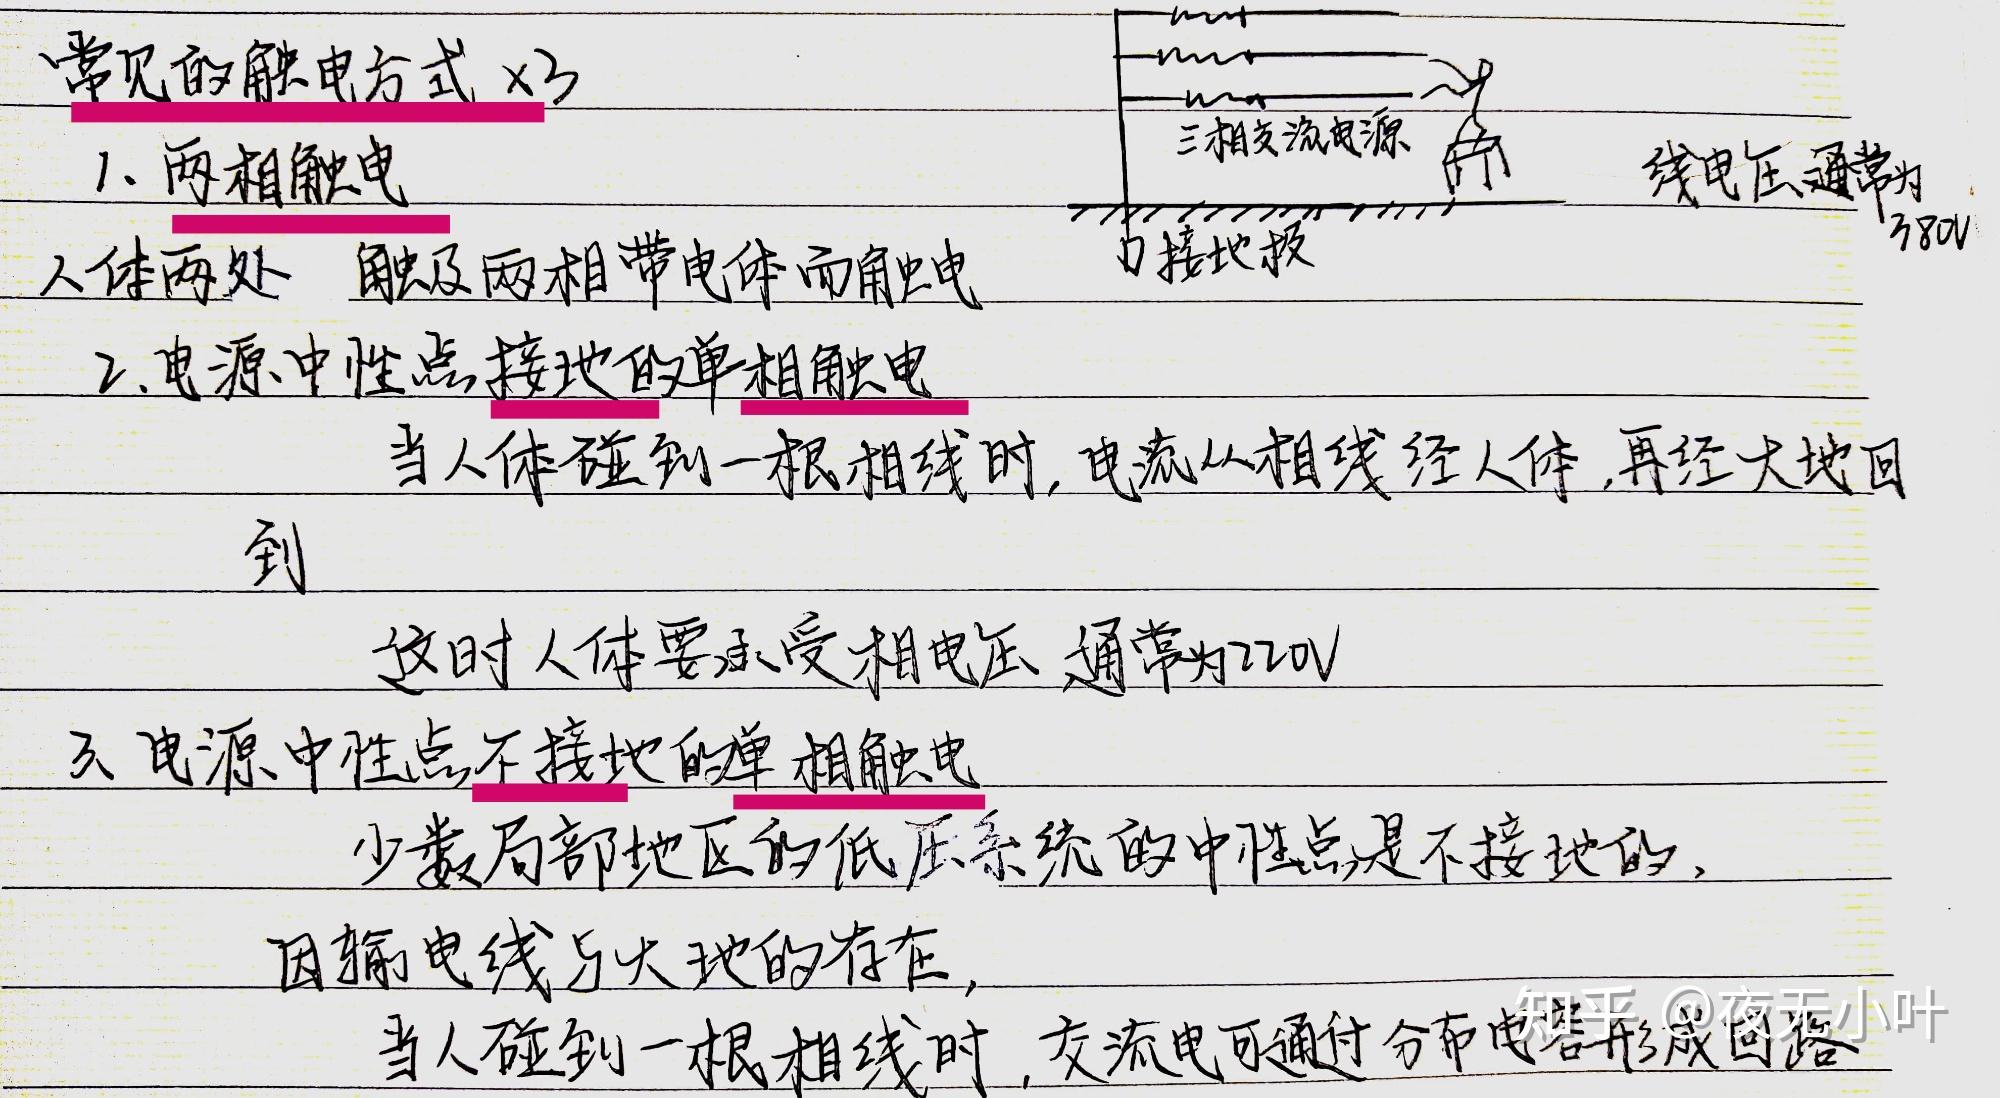 常见的触电方式 ×3
三相交流电源
1、两相触电
线电压、通常为
380V
接地极
人体两处 触及两相带电体而触电
2、电源中性点接地的单相触电
当人体碰到一根相线时,电流从相线经人体,再经大地回
到
这时人体要承受相电压、通常为220V
3、电源中性点不接地的单相触电
少数局部地区的低压系统的中性点是不接地的,
因输电线与大地的存在,
当人碰到一根相线时,交流电可通过分布电容形成回路
知乎 @夜无小叶